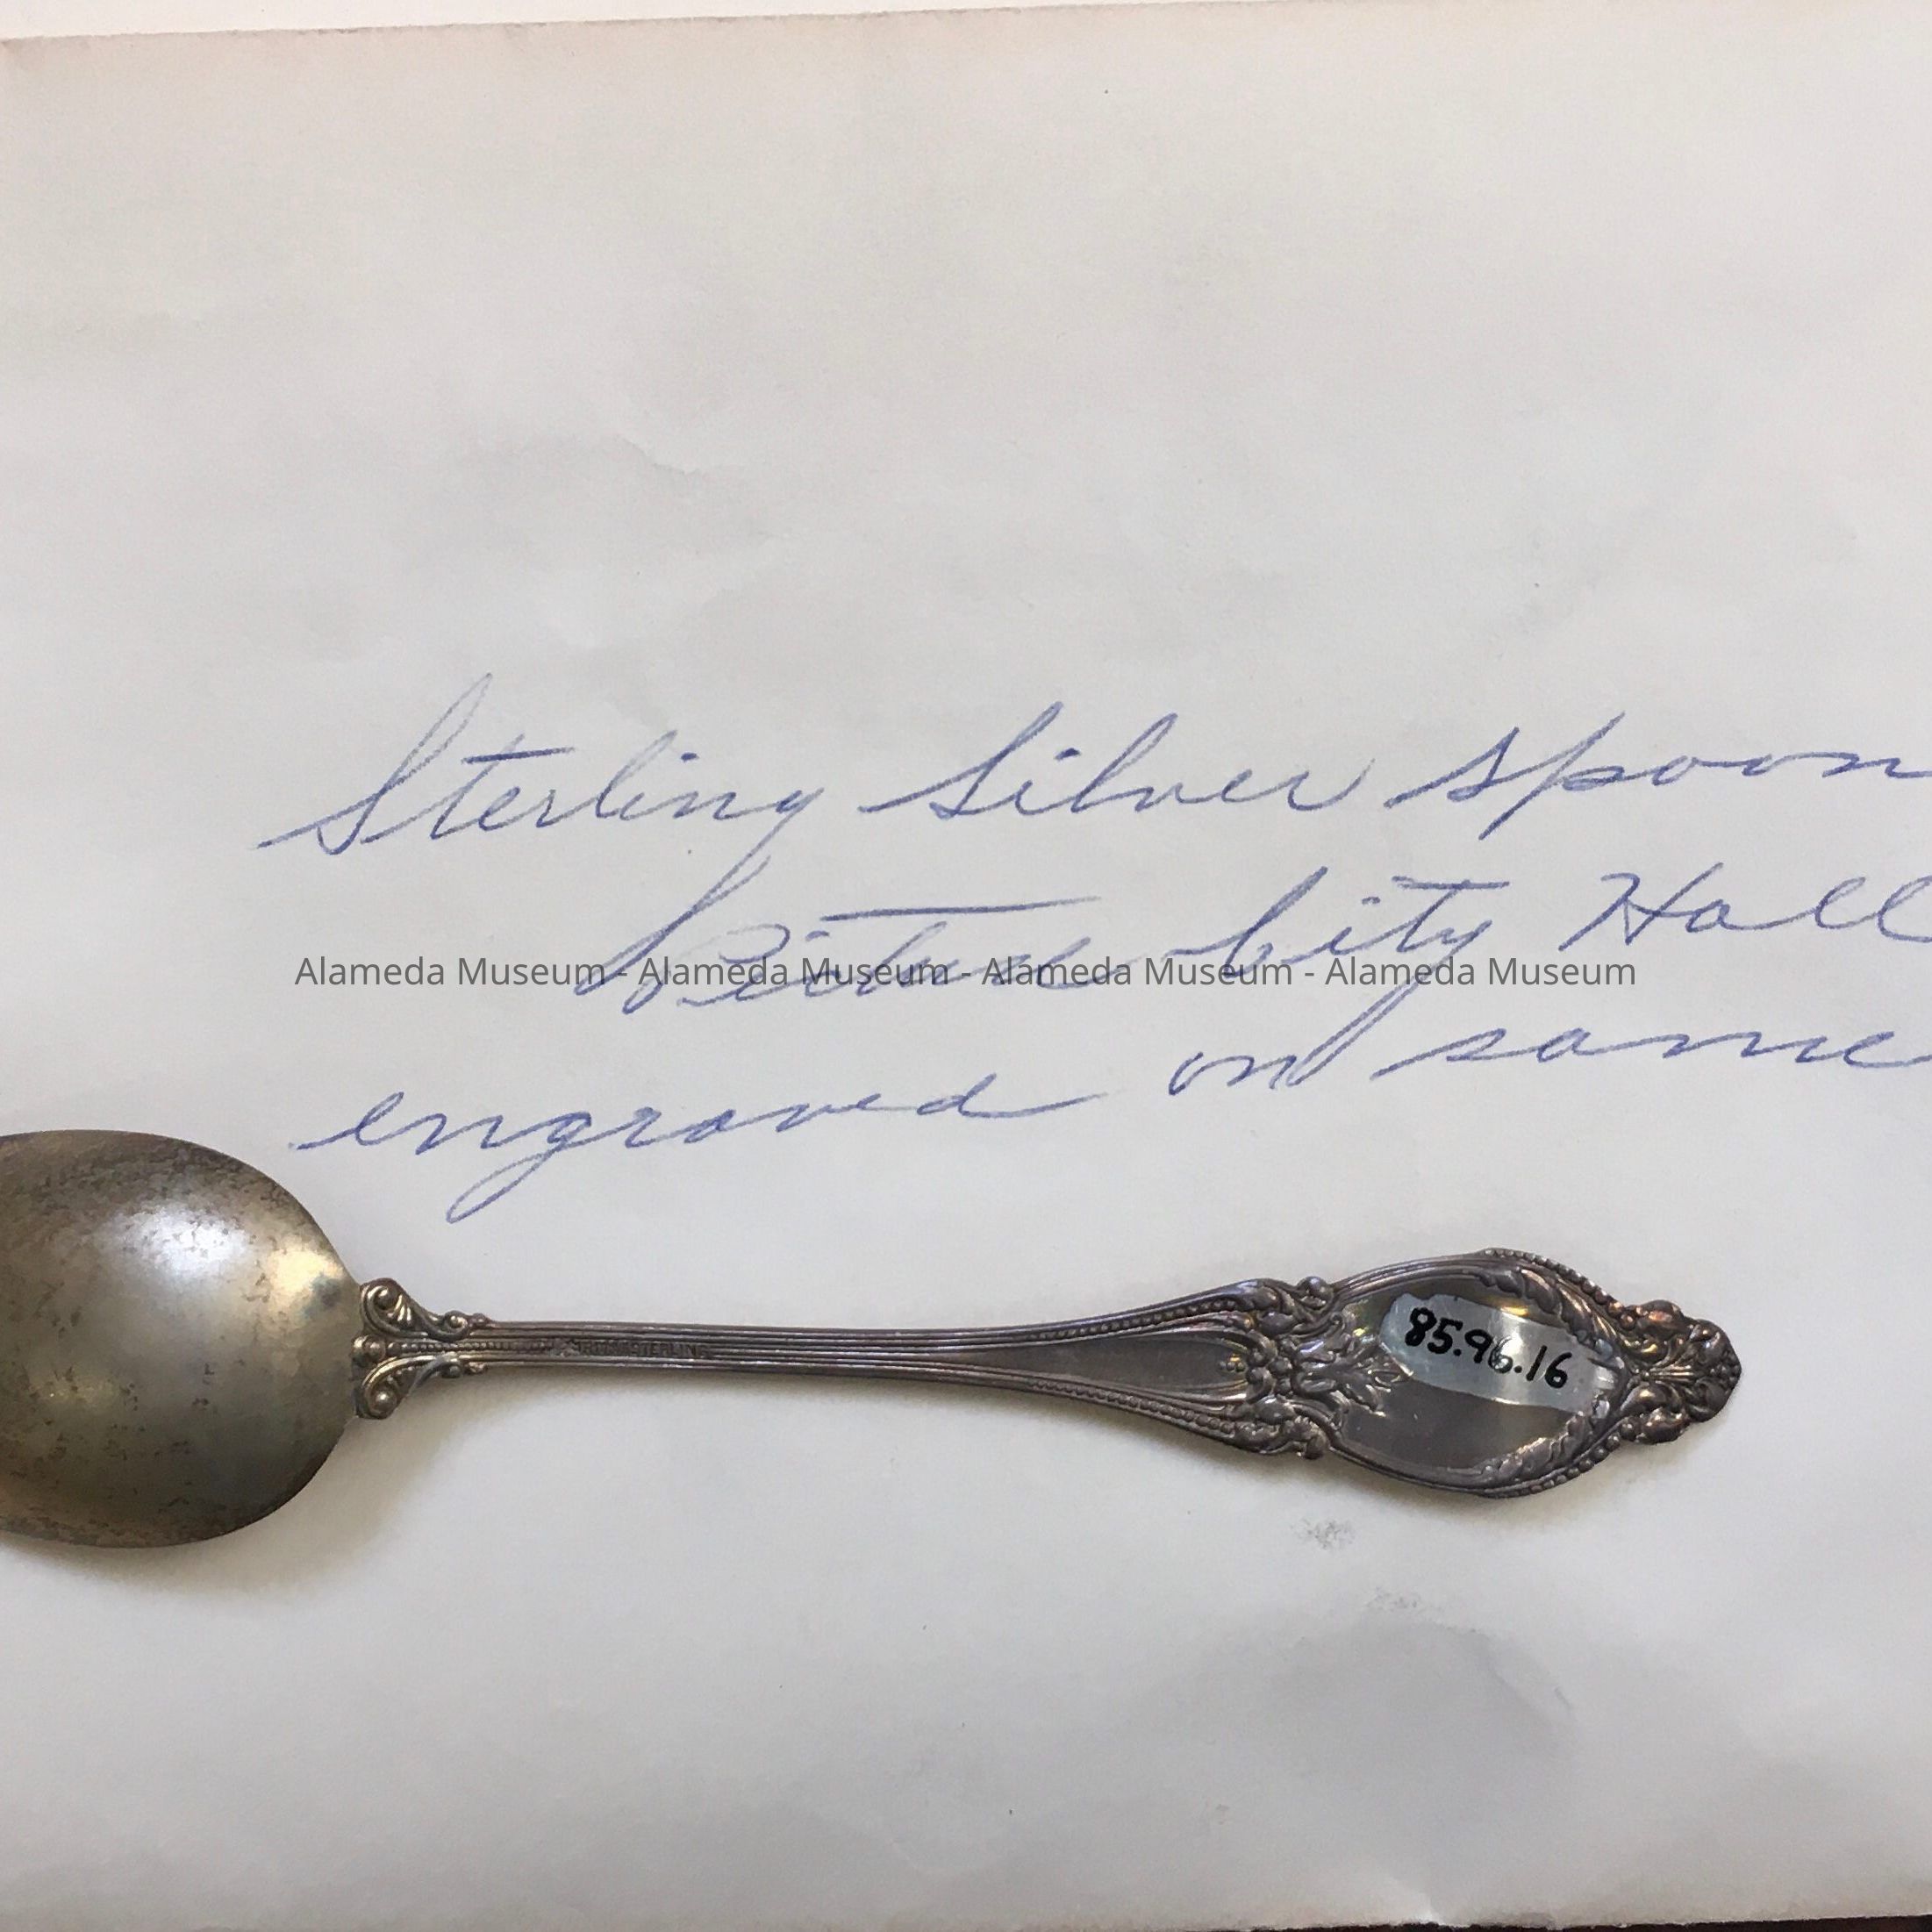 Sterling Silver spoon
Picture City Hall
Alameda Museum - Alameda Museum - Alameda Museum - Alameda Museum
engraved on same
STERLING
85.96.16